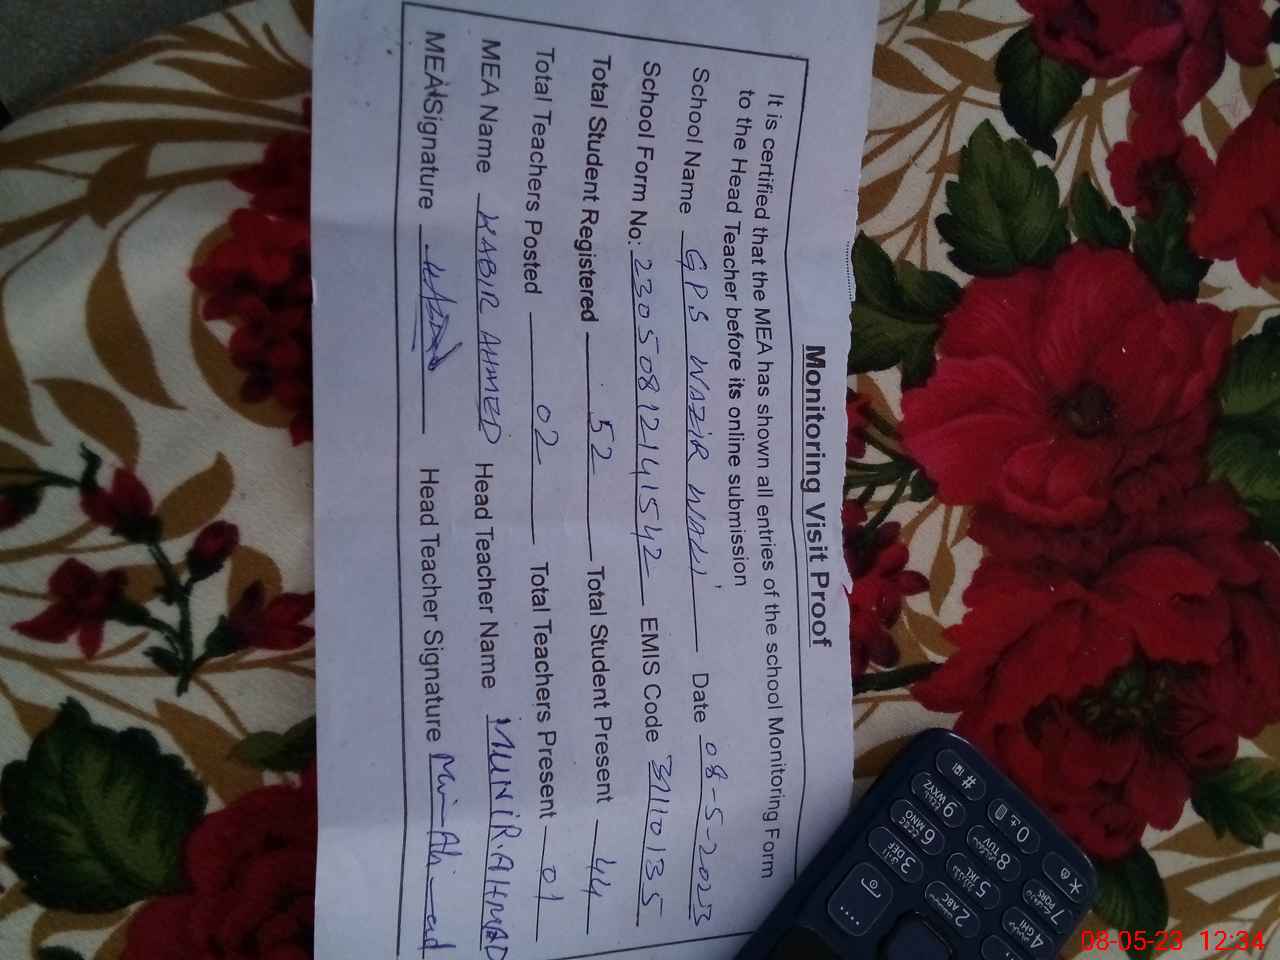 Monitoring Visit Proof
It is certified that the MEA has shown all entries of the school Monitoring Form
to the Head Teacher before its online submission
School Name GPS WAZIR WALI Date 08-5-2023
School Form No: 23050812141542 EMIS Code 31110135
Total Student Registered 52 Total Student Present 44
Total Teachers Posted 02 Total Teachers Present 01
MEA Name KABIR AHMED Head Teacher Name MUNIR.AHMAD
MEA Signature Head Teacher Signature
# 0 *
9 WXYZ 8 TUV 7 PQRS
6 MNO 5 JKL 4 GHI
3 DEF 2 ABC
08-05-23 12:34